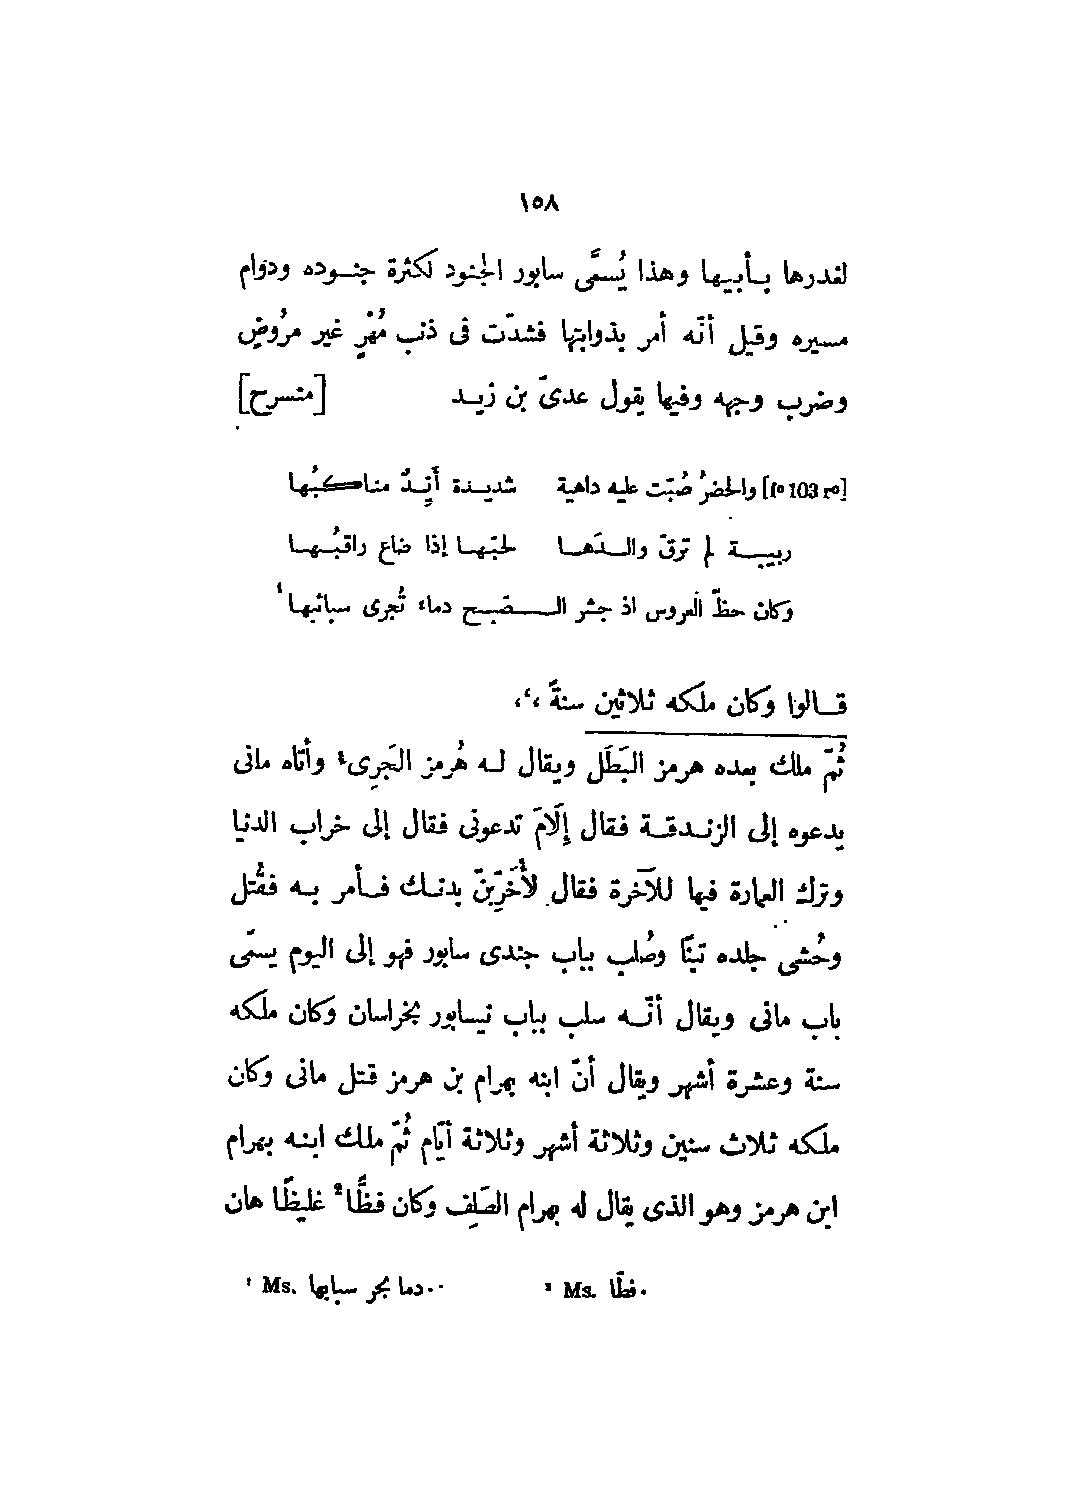 ١٥٨
لغدرها بأبيها وهذا يُسمَّى سابور الجنود لكثرة جنوده ودوام
مسيره وقيل أنّه أمر بذوابتها فشدّت فى ذنب مُهْرٍ غير مرُوضٍ
وضرب وجهه وفيها يقول عدىّ بن زيد [منسرح]
[f° 103 r°] والحضرُ صُبّت عليه داهية شديدة أَيِّدٌ مناكبُها
ربيبة لم ترقّ والدَها لحبّها إذا ضاع راقبُها
وكان حظّ العروس اذ جشر الصّبح دماء تُجرى سبائبها¹
قالوا وكان ملكه ثلاثين سنةً ،‘،
ثُمّ ملك بعده هرمز البَطَل ويقال له هُرمز الجَرِىء وأتاه مانى
يدعوه إلى الزندقة فقال إلَامَ تدعونى فقال إلى خراب الدنيا
وترك العمارة فيها للآخرة فقال لأُخَرِّبَنّ بدنك فأمر به فقُتل
وحُشى جلده تبنًا وصُلب بباب جندى سابور فهو إلى اليوم يسمّى
باب مانى ويقال أنّه سلب بباب نيسابور بخراسان وكان ملكه
سنة وعشرة أشهر ويقال أنّ ابنه بهرام بن هرمز قتل مانى وكان
ملكه ثلاث سنين وثلاثة أشهر وثلاثة أيّام ثُمّ ملك ابنه بهرام
ابن هرمز وهو الذى يقال له بهرام الصَلِف وكان فظًّا² غليظًا هان
¹ Ms. دما بجر سبابها ..
² Ms. فطّا .